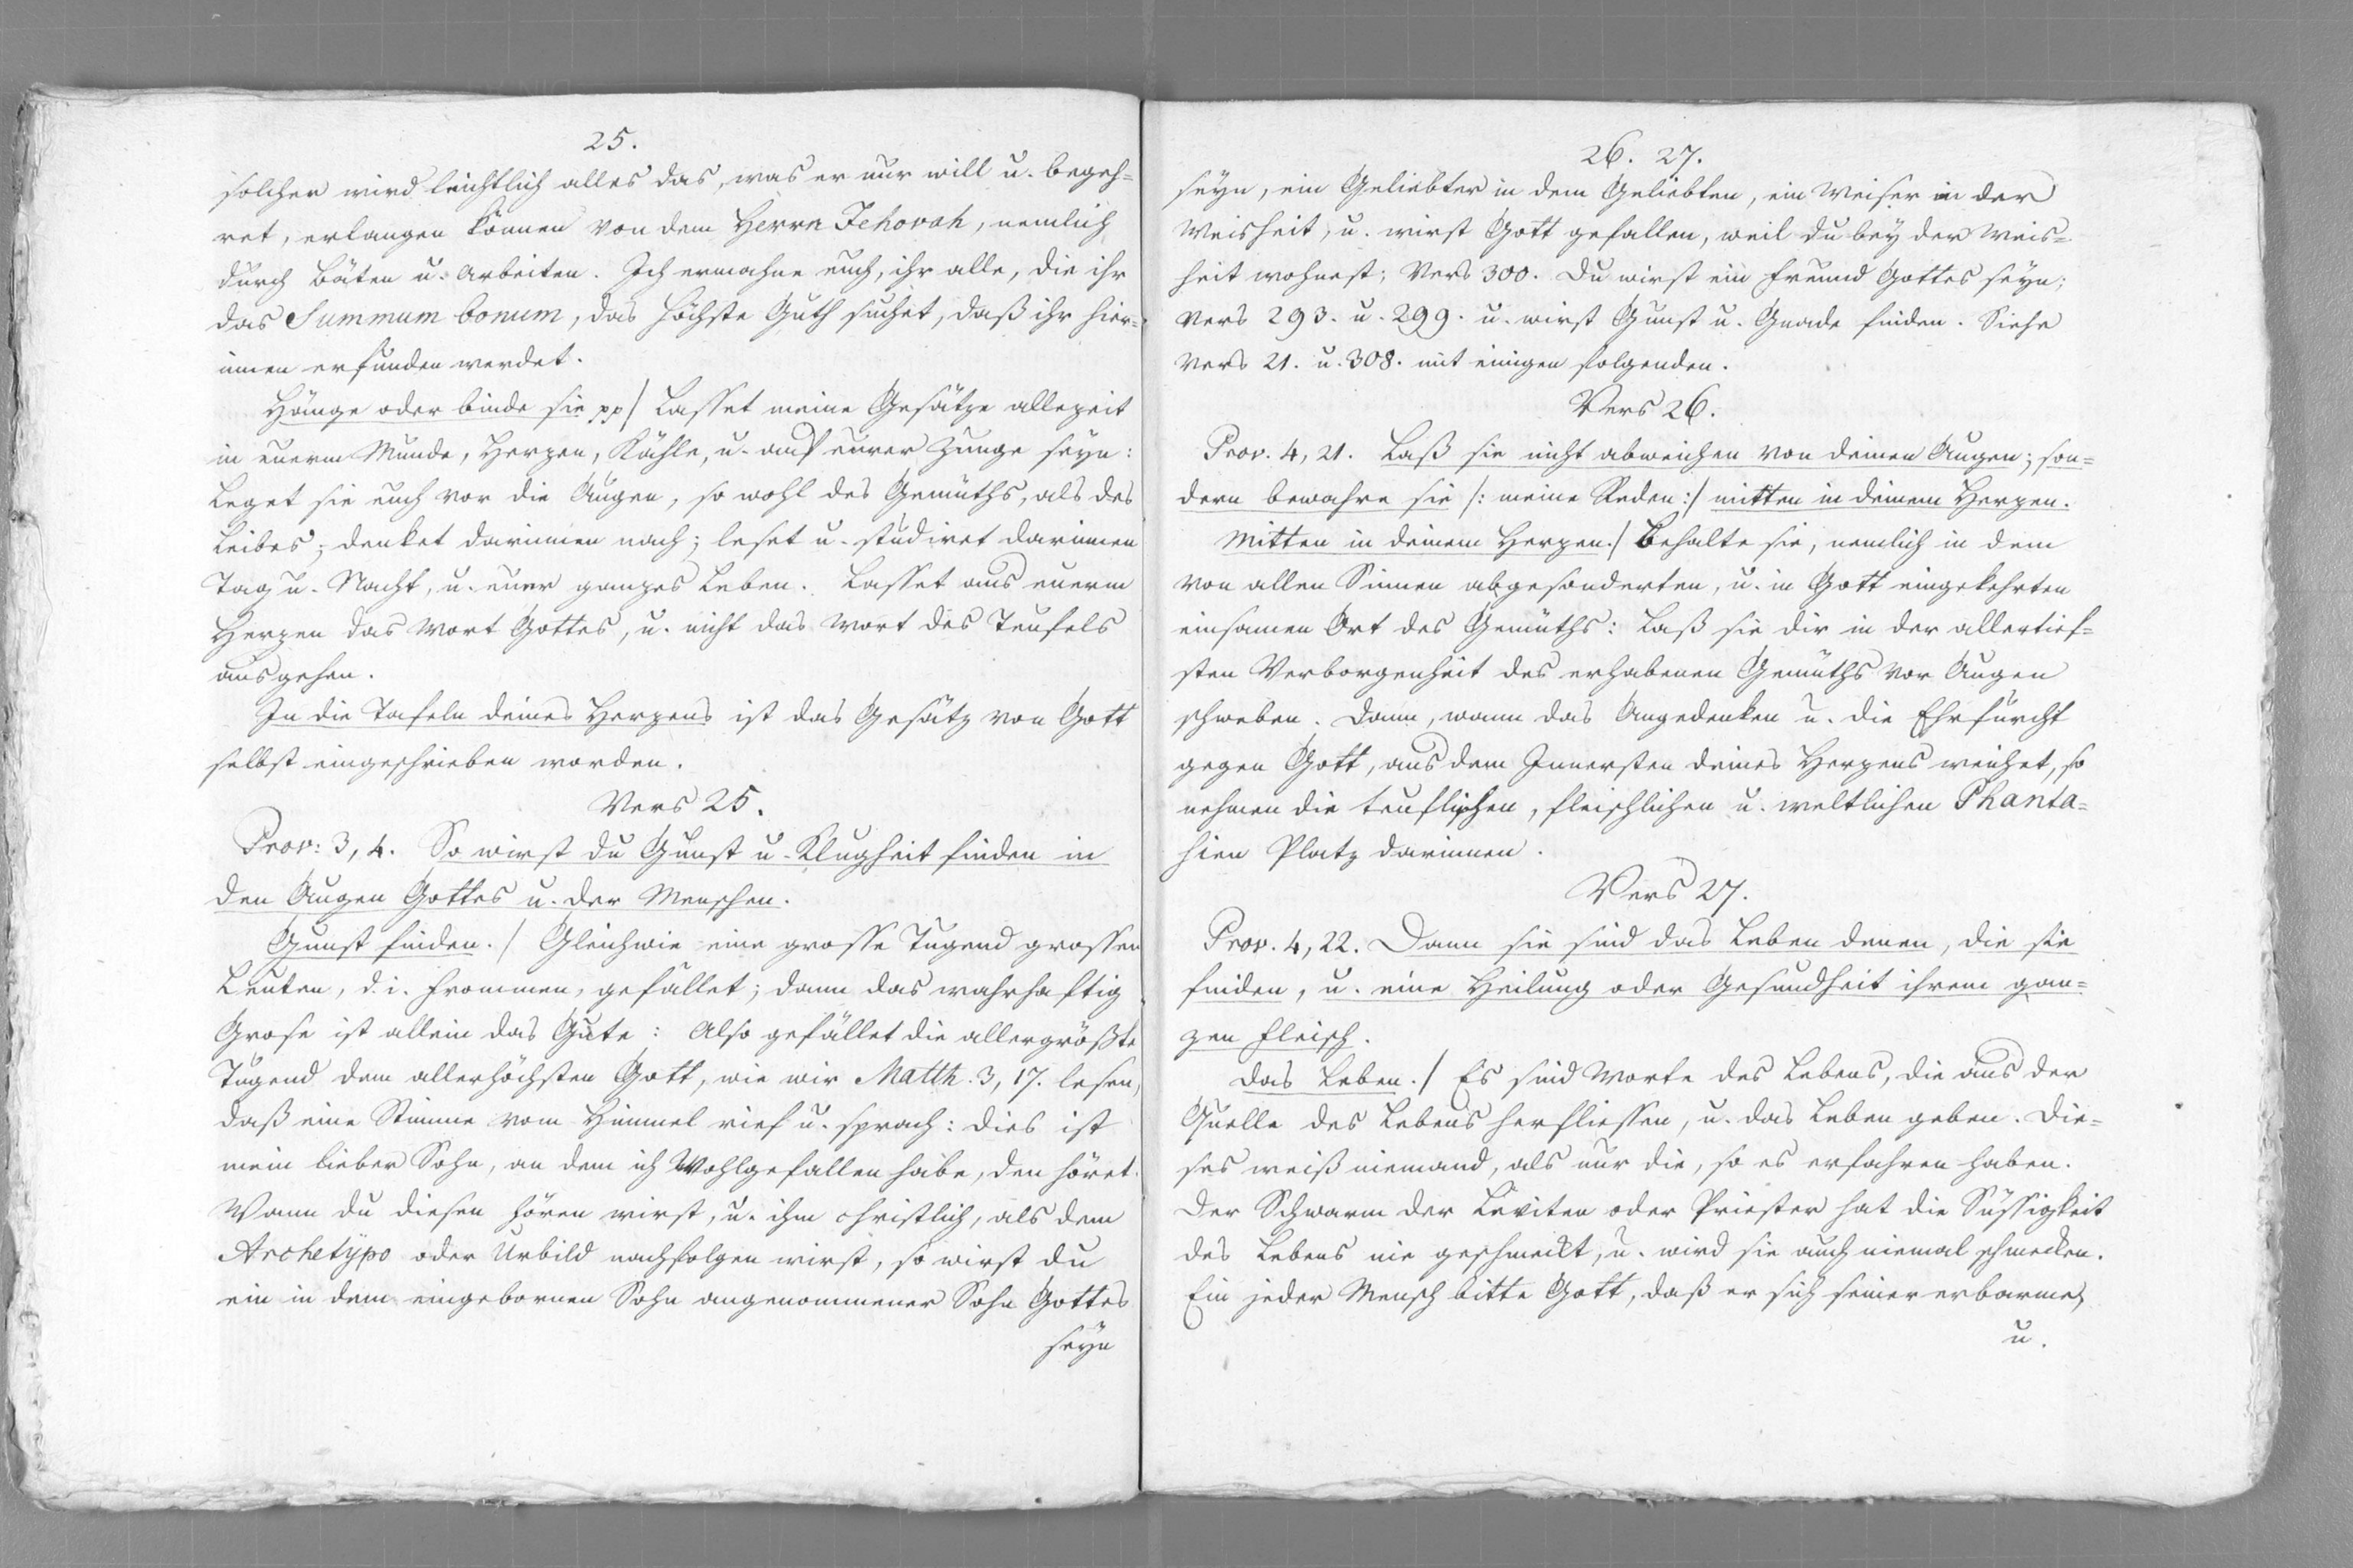 25.
solcher wird leichtlich alles das, was er nur will u. begeh=
ret, erlangen können von dem Herrn Jehovah, nemlich
durch Bäten u. Arbeiten. Ich ermahne euch, ihr alle, die ihr
das Summum bonum, das höchste Guth suchet, daß ihr hier=
innen erfunden werdet.
Hänge oder binde sie pp/ Lasset meine Gesätze allezeit
in euerm Munde, Herzen, Kähle, u. auf eurer Zunge seyn:
Leget sie euch vor die Augen, so wohl des Gemüths, als des
Leibes; denket darinnen nach; leset u. studiret darinnen
Tag u. Nacht, u. euer ganzes Leben. Lasset aus euerm
Herzen das Wort Gottes, u. nicht das Wort des Teufels
ausgehen.
In die Tafeln deines Herzens ist das Gesätz von Gott
selbst eingeschrieben worden.
Vers 25.
Prov: 3, 4. So wirst du Gunst u. Klugheit finden in
den Augen Gottes u. der Menschen.
Gunst finden./ Gleichwie eine grosse Tugend grossen
Leuten, d. i. frommen, gefället; dann das wahrhaftig
Grose ist allein das Gute: Also gefället die allergrößte
Tugend dem allerhöchsten Gott, wie wir Matth. 3, 17. lesen,
daß eine Stimme vom Himmel rief u. sprach: dies ist
mein lieber Sohn, an dem ich Wohlgefallen habe, den höret.
Wann du diesen hören wirst, u. ihm christlich, als dem
Archetypo oder Urbild nachfolgen wirst, so wirst du
ein in dem eingebornen Sohn angenommener Sohn Gottes
seyn
26. 27.
seyn, ein Geliebter in dem Geliebten, ein Weiser in der
Weisheit, u. wirst Gott gefallen, weil du bey der Weis=
heit wohnest; Vers 300. Du wirst ein Freund Gottes seyn;
Vers 293. u. 299. u. wirst Gunst u. Gnade finden. Siehe
Vers 21. u. 308. mit einigen folgenden.
Vers 26.
Prov. 4, 21. Laß sie nicht abweichen von deinen Augen; son=
dern bewahre sie /: meine Reden :/ mitten in deinem Herzen.
Mitten in deinem Herzen./ Behalte sie, nemlich in dem
von allen Sinnen abgesonderten, u. in Gott eingekehrten
einsamen Ort des Gemüths: Laß sie dir in der allertief=
sten Verborgenheit des erhabenen Gemüths vor Augen
schweben. Dann, wann das Angedenken u. die Ehrfurcht
gegen Gott, aus dem Innersten deines Herzens weichet, so
nehmen die teuflischen, fleischlichen u. weltlichen Phanta=
sien Platz darinnen.
Vers 27.
Prov. 4, 22. Dann sie sind das Leben denen, die sie
finden, u. eine Heilung oder Gesundheit ihrem gan=
zen Fleisch.
Das Leben./ Es sind Worte des Lebens, die aus der
Quelle des Lebens herfliessen, u. das Leben geben. Die=
ses weiß niemand, als nur die, so es erfahren haben.
Der Schwarm der Leviten oder Priester hat die Süssigkeit
des Lebens nie geschmeckt, u. wird sie auch niemal schmecken.
Ein jeder Mensch bitte Gott, daß er sich seiner erbarme,
u.